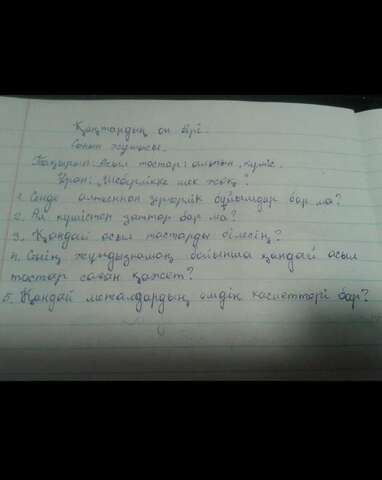 Қаңтардың он бірі.
Сынып жұмысы.
Тақырып: Асыл тастар: алтын, күміс.
Ұран: "Шеберлікке шек жоқ".
1. Сенде алтыннан зергерлік бұйымдар бар ма?
2. Ал күмістен заттар бар ма?
3. Қандай асыл тастарды білесің?
4. Сенің жұлдызнамаң бойынша қандай асыл
тастар саған қажет?
5. Қандай металдардың емдік қасиеттері бар?